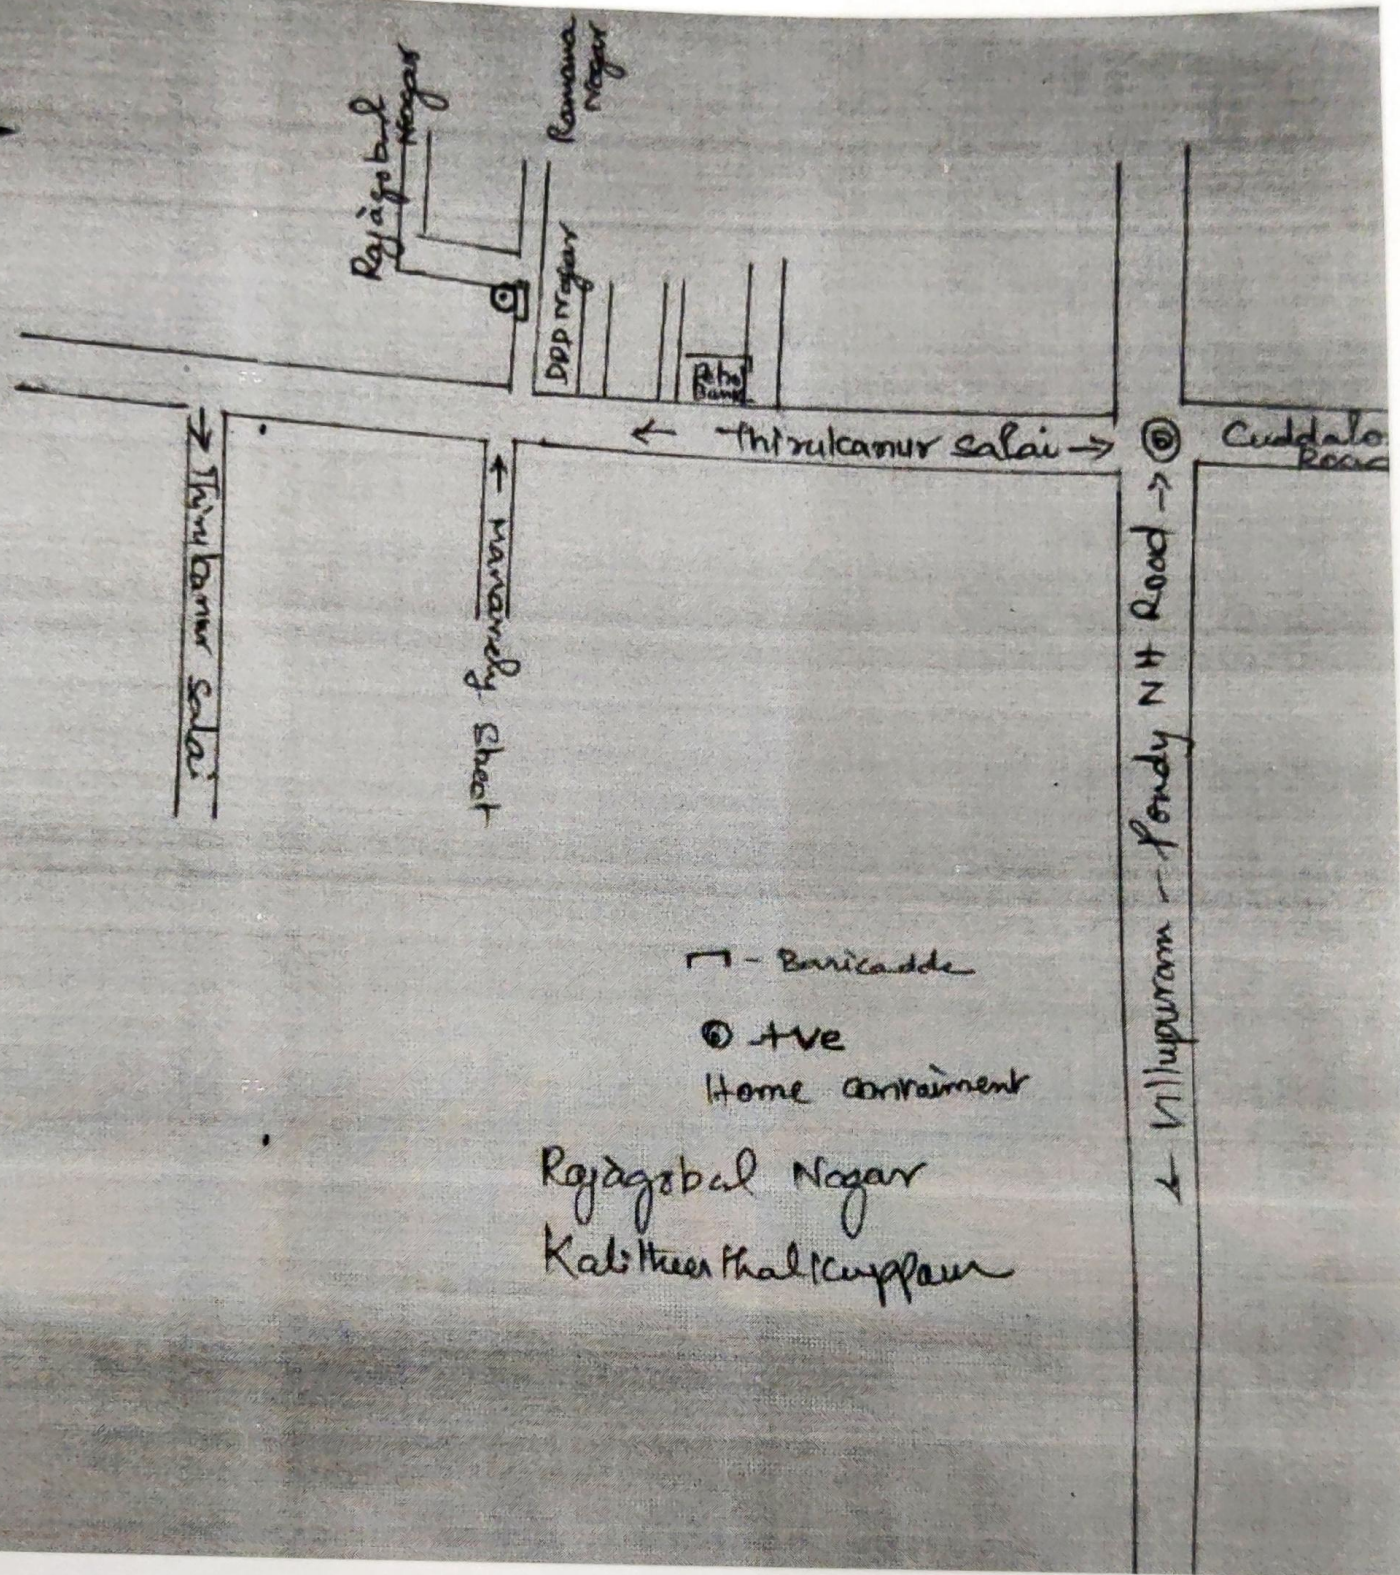 Rajàgobal
Nagar
Ramana
Nagar
DDD Nagar
← Thirukanur Salai →
Cuddalo
Road
→ Thirukanur Salai
← Manavely Street
← Villupuram - Pondy NH Road →
- Baricadde
+ve
Home contraiment
Rajàgobal Nagar
Kalitheerthalkuppam